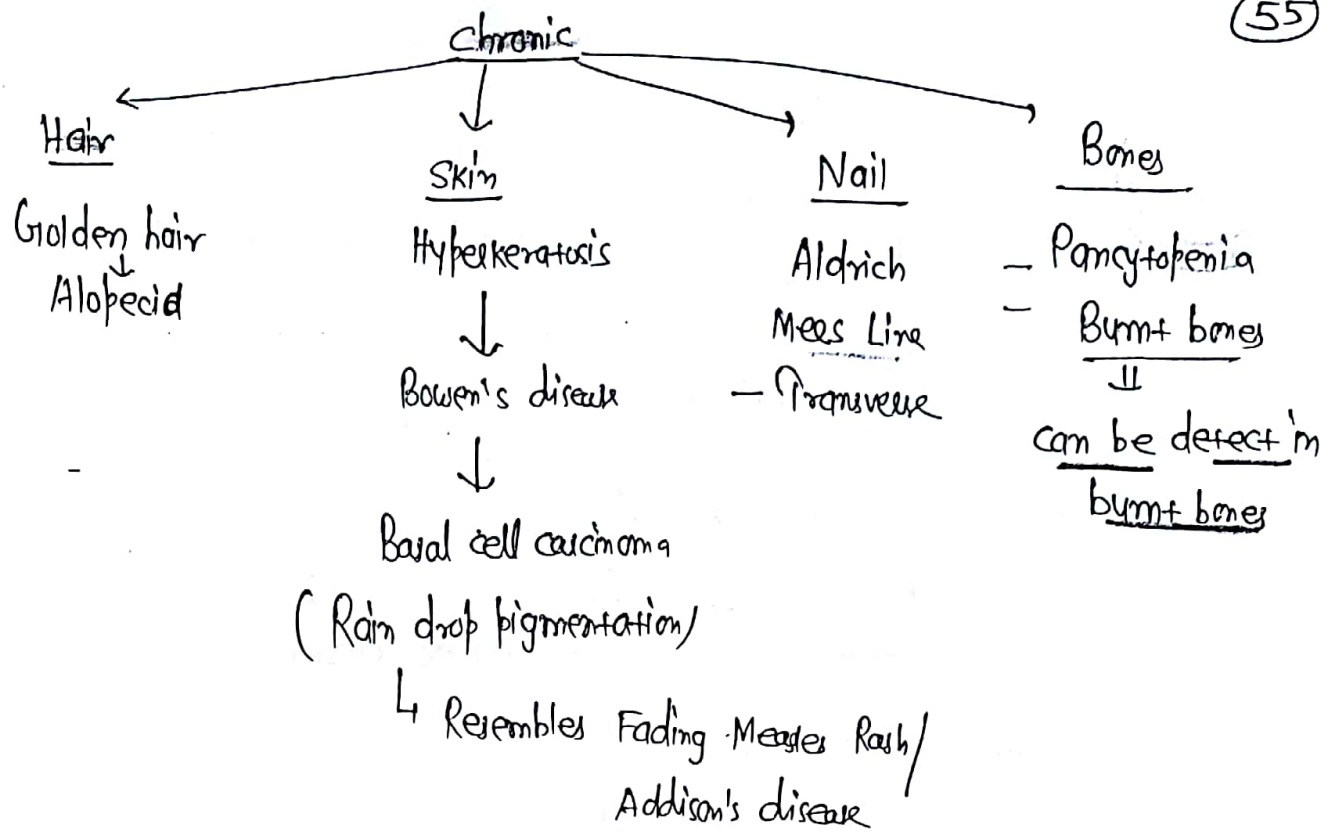 55
Chronic
Hair
Golden hair
↓
Alopecia
Skin
Hyperkeratosis
↓
Bowen's disease
↓
Basal cell carcinoma
(Rain drop pigmentation)
↳ Resembles Fading Measles Rash/
Addison's disease
Nail
Aldrich
Mees Line
- Transverse
Bones
- Pancytopenia
- Burnt bones
⇓
can be detect in
burnt bones